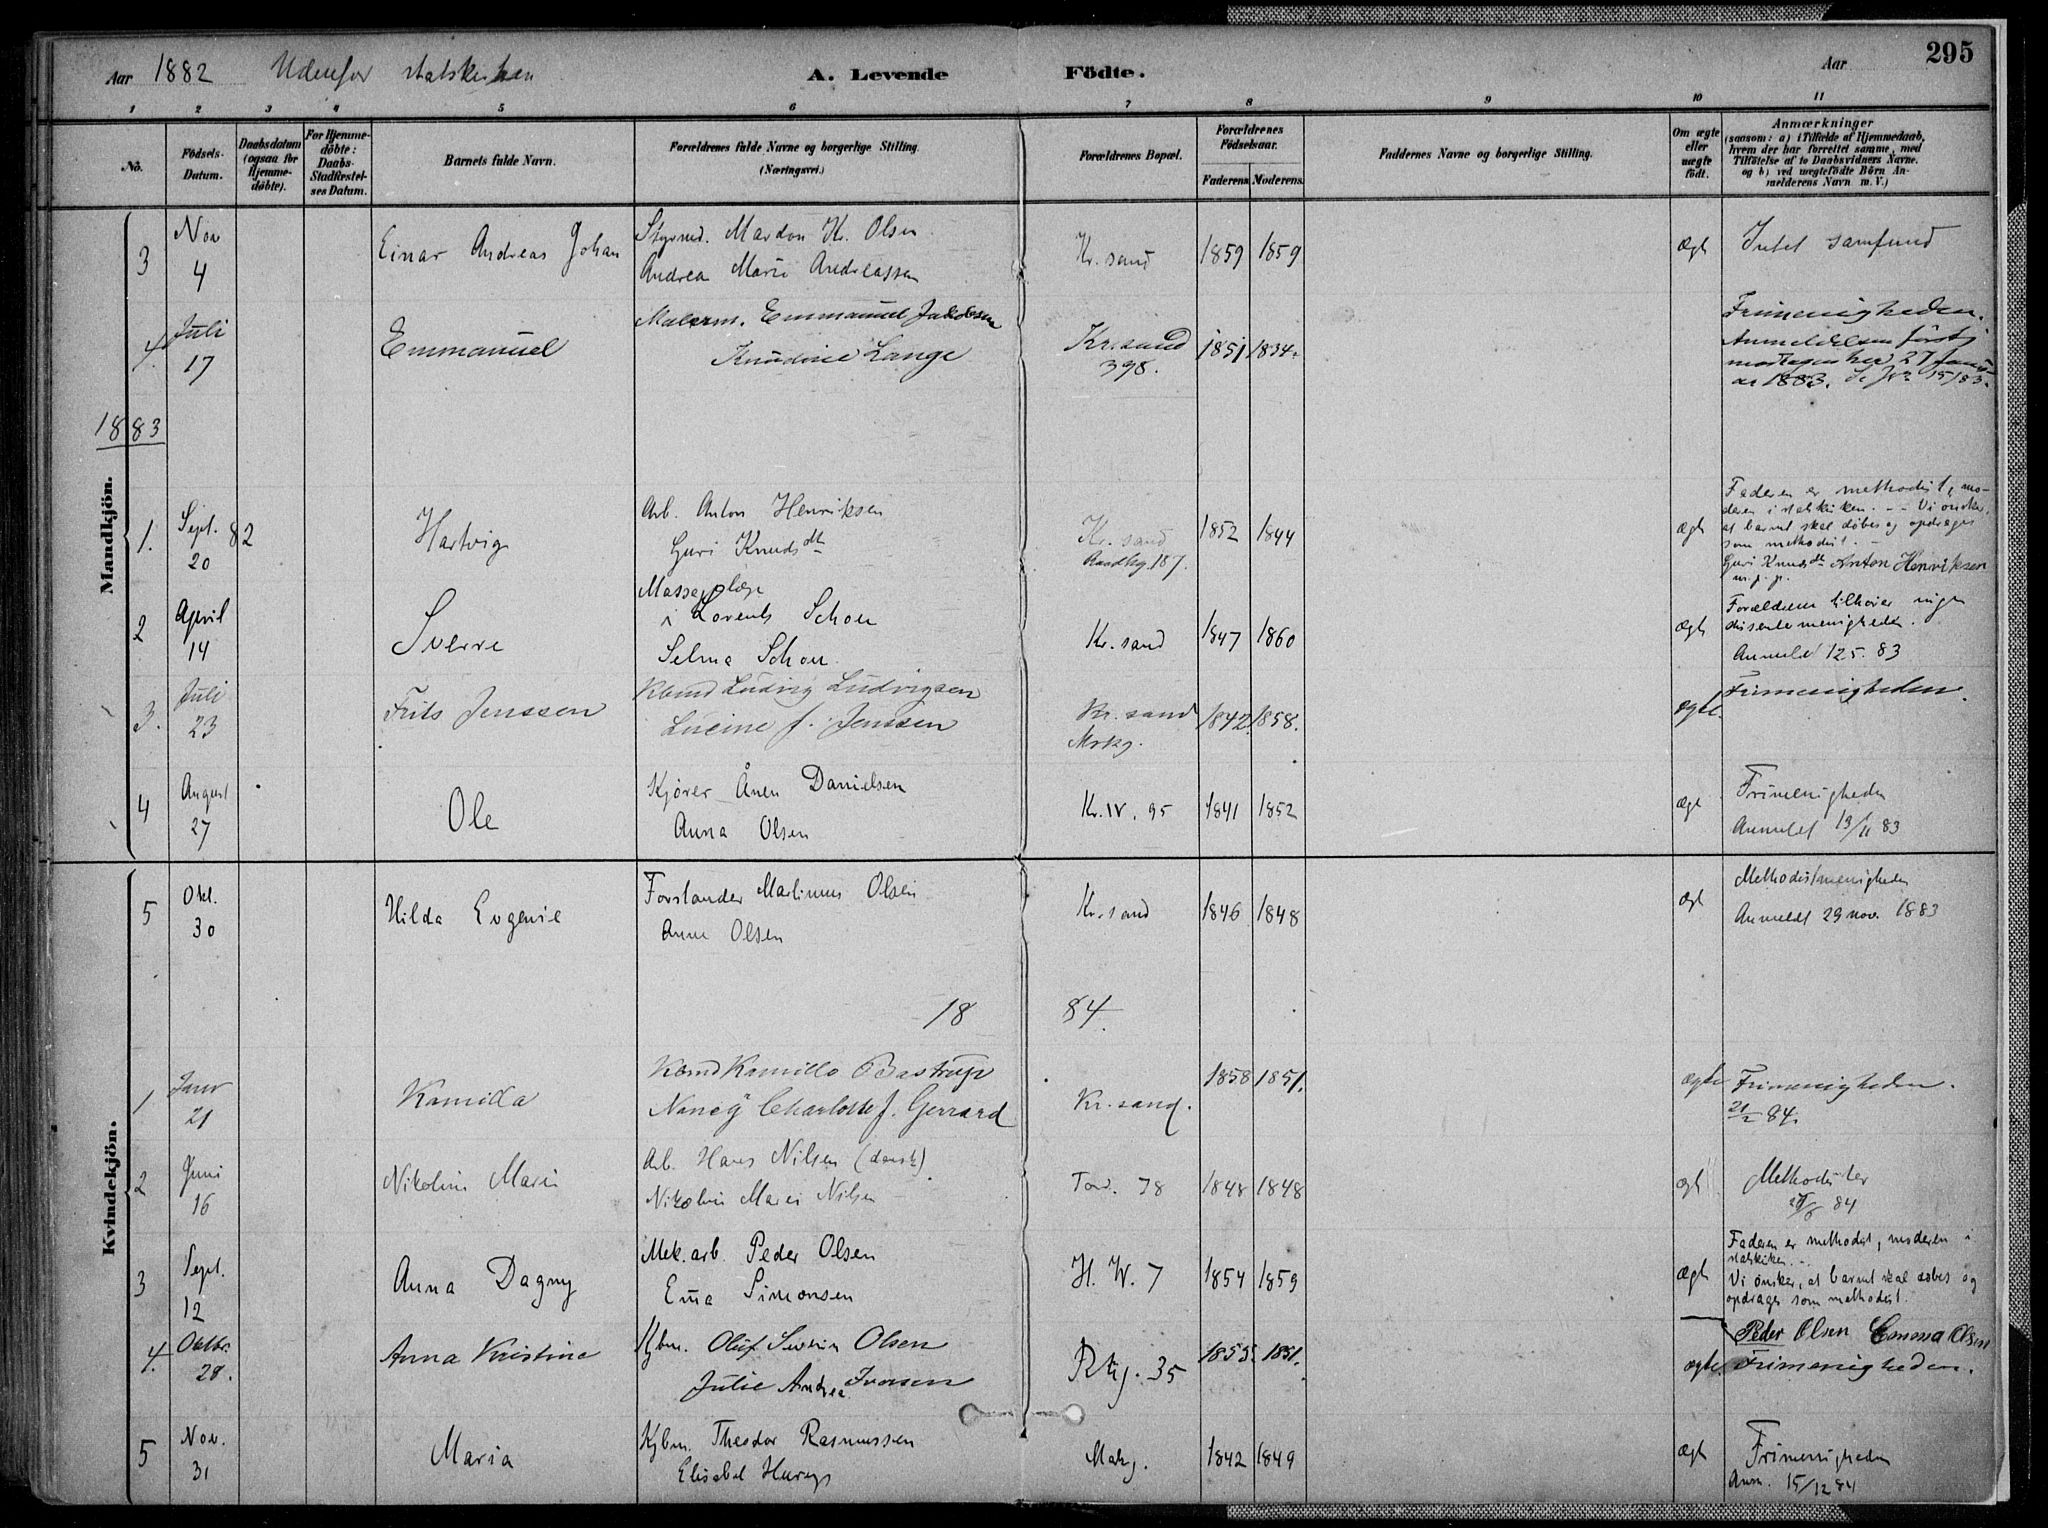 Aar 1882 Udenfor statskirken A. Levende Födte. Aar 295
1 2 3 4 5 6 7 8 9 10 11
No.
Födsels-Datum.
Daabsdatum (ogsaa for Hjemme-döbte).
For Hjemme-döbte: Daabs-Stadfæstel-ses Datum.
Barnets fulde Navn.
Forældrenes fulde Navne og borgerlige Stilling. (Næringsvei.)
Forældrenes Bopæl.
Forældrenes Födselsaar.
Faderens. Moderens.
Faddernes Navne og borgerlige Stilling.
Om ægte eller uægte födt.
Anmærkninger
(saasom: a) i Tilfælde af Hjemmedaab,
hvem der har forrettet samme, med
Tilföielse af to Daabsvidners Navne.
og b) ved uægtefödte Börn An-
melderens Navn m. V.)
Mandkjön.
3 Nov 4 Einar Andreas Johan
Styrmd. Mardon Kr. Olsen
Andrea Marie Andreassen
Kr.sand 1859 1859 Ægt Intet samfund
4. Juli 17 Emmanuel
Malerm. Emmanuel Jakobsen
Knudine Lange
Kr.sand 398. 1851 1834.
Frimenigheden.
Anmeldelsen först
modtagen her 27 Janu-
ar 1883. Se Jr. 15/83.
1883
1. Sept. 82 20 Hartvig
Arb. Anton Henriksen
Guri Knudsdtr
Kr.sand 187. 1852 1844 Ægt
Faderen er methodist, mo-
deren i statskirken. -- Vi ønsker,
at barnet skal døbes og opdrages
som methodist. -
Guri Knudsdtr Anton Henriksen
m. p. p.
2 April 14 Sverre
Massør
Lorents Schou
Selma Schou.
Kr.sand 1847 1860 Ægt
Forældrene tilhører ingen
dissentermenigheden.
Anmeldt 12 5. 83
3. Juli 23 Frits Jenssen
Kbmd Ludvig Ludvigsen
Lucine f. Jenssen
Kr.sand Mrkg. 1842. 1858. ægte. Frimenigheden.
4 August 27 Ole
Kjører Ånen Danielsen
Anna Olsen
Kr. IV. 95 1841 1852 ægt
Frimenigheden
Anmeldt 13/11 83
Kvindekjön.
5 Okt. 30 Hilda Eugenie
Forstander Martinus Olsen
Anne Olsen
Kr.sand 1846 1848 ægt
Methodistmenigheden
Anmeldt 29 nov. 1883
1884.
1 Janr 21 Kamilla
Kbmd Kamillo Bastrup
Nancy Charlotte f. Gerrard
Kr.sand. 1858 1851. ægte Frimenigheden.
21/2 84.
2 Juni 16 Nikoline Marie
Arb. Hans Nilsen (dansk)
Nikoline Marie Nilsen
Tord. 78 1848 1848 ægt Methodister
84
3 Sept. 12 Anna Dagny
Mek.arb. Peder Olsen
Ema Simonsen
H. W. 7 1854 1859 Ægt
Faderen er methodist, moderen i
statskirken. -.
Vi ønsker, at barnet skal døbes og
opdrages som methodist.
Peder Olsen Emma Olsen
4. Oktbr. 28. Anna Kristine
Kjbm. Oluf Severin Olsen
Julie Andrea Iversen
Rkg. 35 1855. 1851. ægte. Frimenigheden.
5 Nov. 31 Maria
Kjbm. Theodor Rasmussen
Elisabet
Makg. 1842 1849 ægt Frimenigheden
Anm. 15/12 84